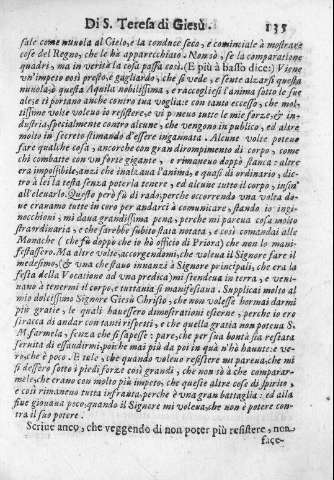 Di S. Teresa di Giesù. 135
sale come nuuola al Cielo, e la conduce seco, e comincìale à mostrare
cose del Regno, che le hà apparecchiato. Non sò, se la comparatione
quadri, ma in verità la cosa passa così. (E più à basso dice:) Viene
vn'impeto così presto, e gagliardo, che si vede, e sente alzarsi questa
nuuola, ò questa Aquila nobilissima, e raccogliesi l'anima sotto le sue
ale, e ti portano anche contro tua voglia: e con tanto eccesso, che mol-
tissime volte voleuo io resistere, e vi pneuo tutte le mie forze, & in-
dustria, specialmente contro alcune, che vengono in publico, ed altre
molto in secreto stimando d'essere ingannata. Alcune volte poteuo
fare qualche cosa, ancorche con gran dirompimento di corpo, come
chi combatte con vn forte gigante, e rimaneuo doppò stanca: altre
era impossibile, anzi che inalzaua l'anima, e quasi di ordinario, die-
tro à lei la testa senza poterla tenere, ed alcune tutto il corpo, insin'
all'eleuarlo. Questo però fù di rado, perche occorrendo vna volta do-
ue erauamo tutte in coro per andarci à comunicare, stando io ingi-
nocchioni, mi daua grandissima pena, perche mi pareua cosa molto
straordinaria, e che sarebbe subito stata notata, e così comandai alle
Monache (che fù doppò che io hò officio di Priora) che non lo mani-
festassero. Ma altre volte, accorgendomi, che voleua il Signore fare il
medesimo, (& vna che stauo innanzi à Signore principali, che era la
festa della Vocatione ad vna predica) mi stendeua in terra, e veni-
uano à tenermi il corpo, e tuttauia si manifestaua. Supplicai molto al
mio dolcissimo Signore Giesù Christo, che non volesse hormai darmi
più gratie, le quali hauessero dimostrationi esterne, perche io ero
stracca di andar con tanti rispetti, e che quella gratia non poteua S.
M. farmela, senza che si sapesse: pare, che per sua bontà sia restata
seruita di essaudirmi, poiche mai più da poi in quà n'hò hauute: è ve-
ro, che è poco. E tale, che quando voleuo resistere mi pareua, che mi
si dessero sotto i piedi forze così grandi, che non sò à che comparar-
mele, che erano con molto più impeto, che queste altre cose di spirito,
e così rimaneuo tutta infranta, perche è vna gran battaglia: ed alla
fine giouaua poco, quando il Signore mi voleua, che non è potere con-
tra il suo potere.
Scriue anco, che veggendo di non poter più resistere, non
face-